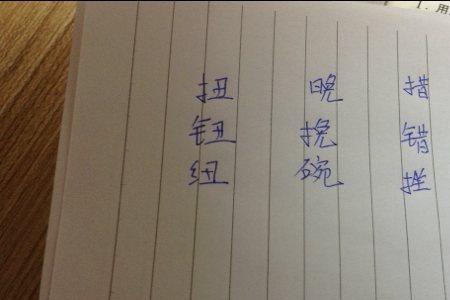 1. 用
扭 晚 措
钮 挽 错
纽 碗 挫